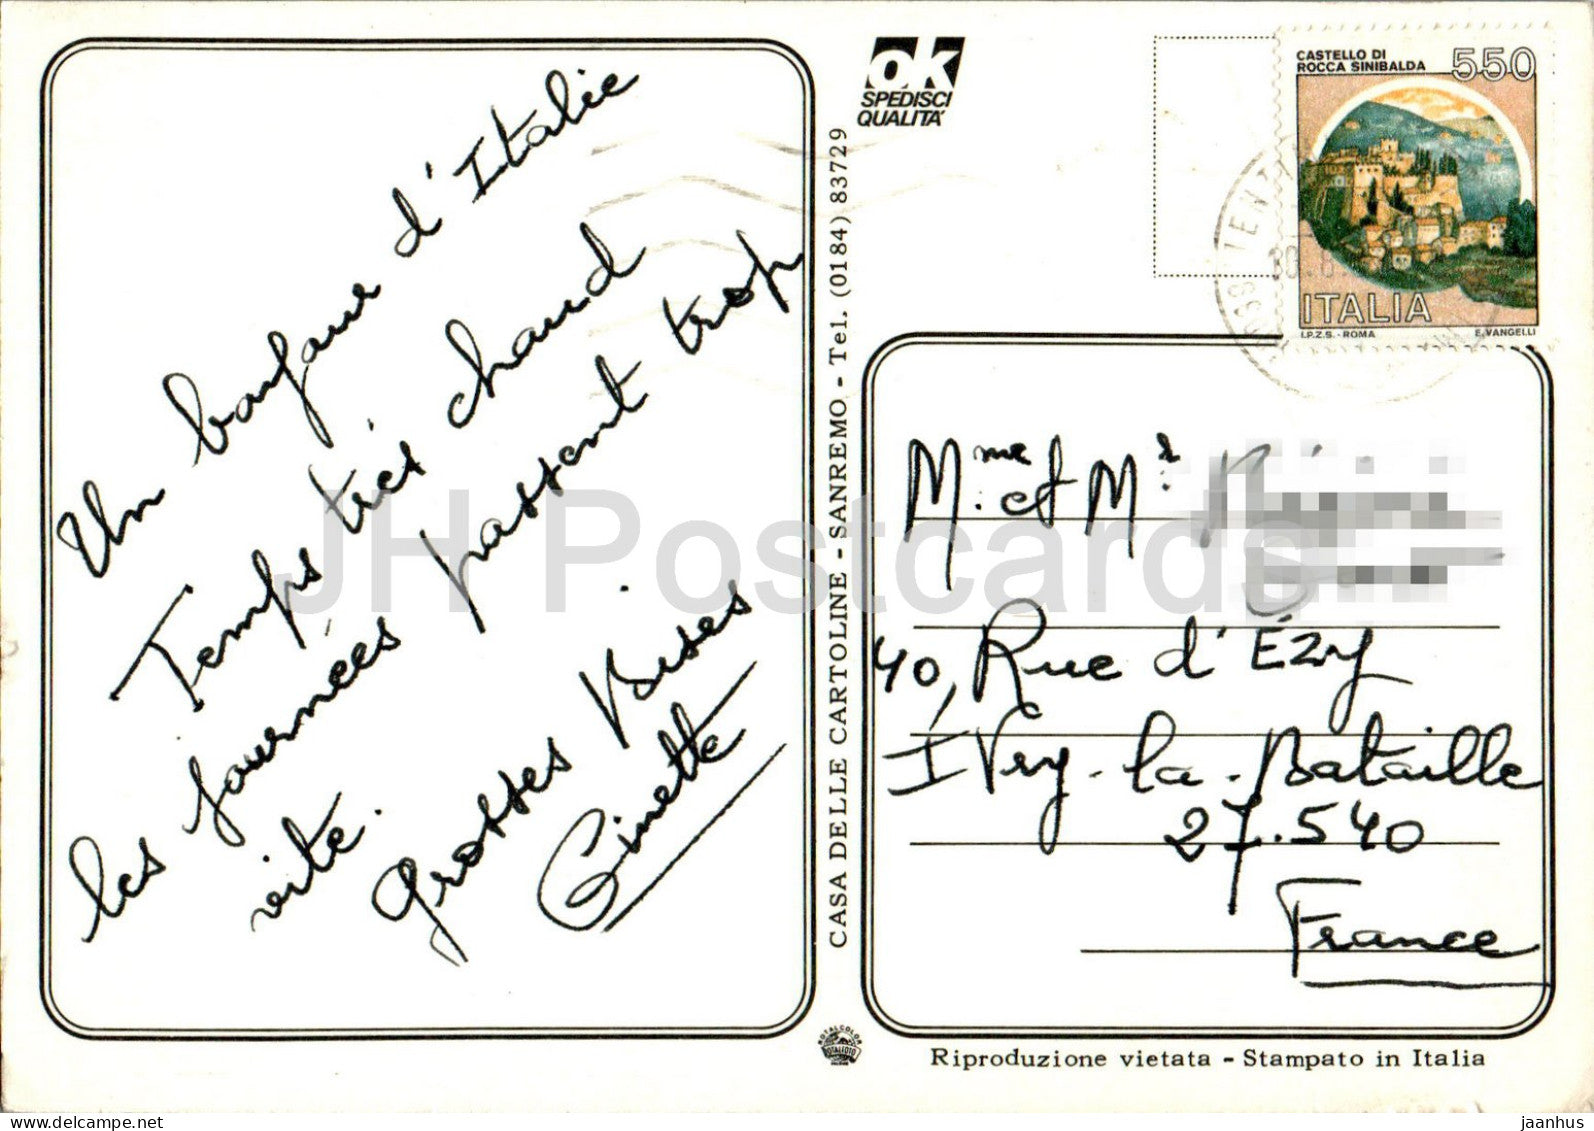 Un bonjour d'Italie
Temps très chaud
les journées passent trop
vite.
Grosses Bises
Ginette
ok
SPEDISCI
QUALITA'
CASA DELLE CARTOLINE - SANREMO - Tel. (0184) 83729
CASTELLO DI
ROCCA SINIBALDA
550
ITALIA
I.P.Z.S. - ROMA E. VANGELLI
Mme et Mr
40, Rue d'Ézy
Ivry-la-Bataille
27.540
France
Riproduzione vietata - Stampato in Italia
JH Postcards
jaanhus